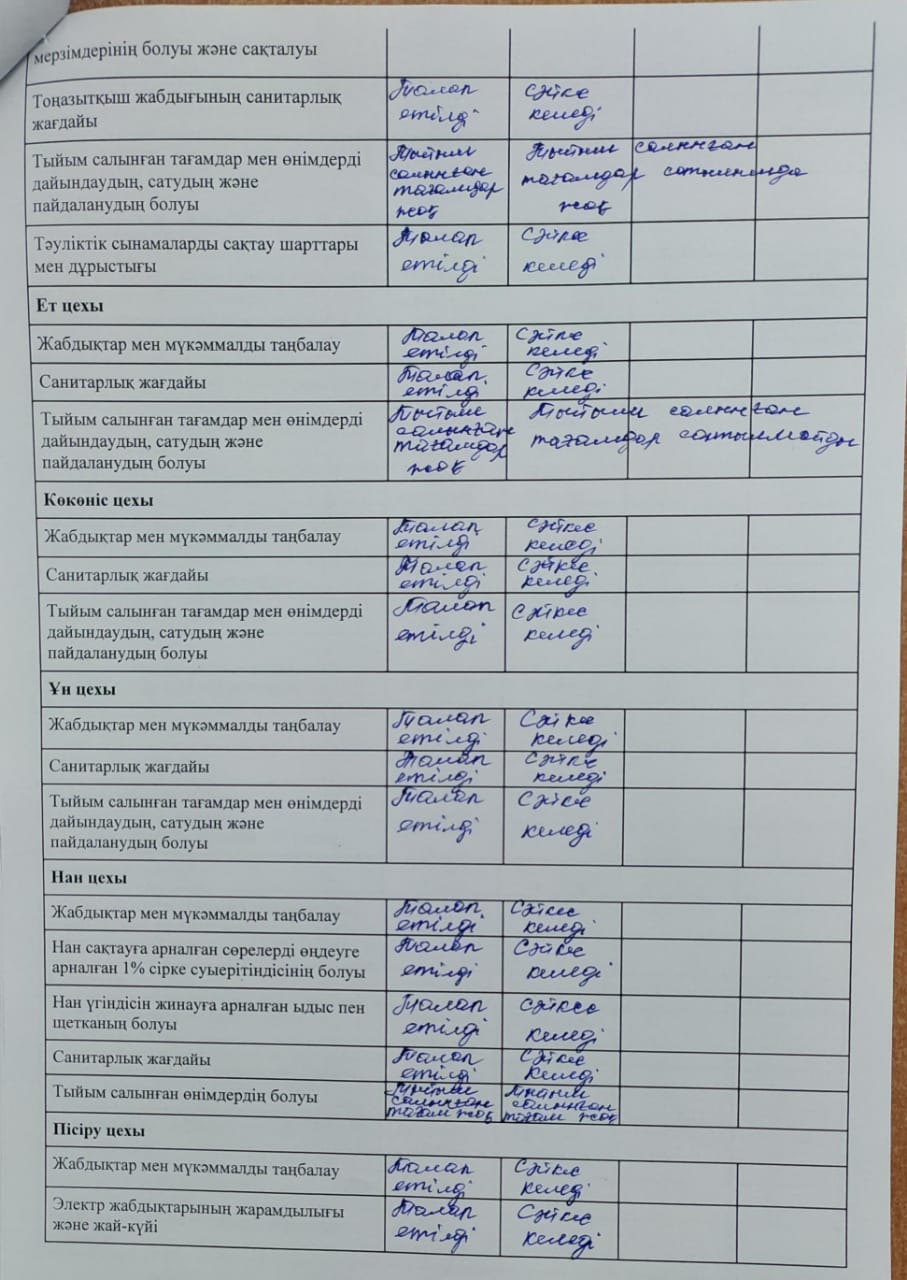 мерзімдерінің болуы және сақталуы
Тоңазытқыш жабдығының санитарлық
жағдайы
Талап
етілді
Сәйкес
келеді
Тыйым салынған тағамдар мен өнімдерді
дайындаудың, сатудың және
пайдаланудың болуы
Тыйым
салынған
тағамдар
жоқ
Тыйым салынған
тағамдар
жоқ
Тәуліктік сынамаларды сақтау шарттары
мен дұрыстығы
Талап
етілді
Сәйкес
келеді
Ет цехы
Жабдықтар мен мүкәммалды таңбалау
Талап
етілді
Сәйкес
келеді
Санитарлық жағдайы
Талап
етілді
Сәйкес
келеді
Тыйым салынған тағамдар мен өнімдерді
дайындаудың, сатудың және
пайдаланудың болуы
Тыйым
салынған
тағамдар
жоқ
Тыйым салынған
тағамдар сатылмайды
Көкөніс цехы
Жабдықтар мен мүкәммалды таңбалау
Талап
етілді
Сәйкес
келеді
Санитарлық жағдайы
Талап
етілді
Сәйкес
келеді
Тыйым салынған тағамдар мен өнімдерді
дайындаудың, сатудың және
пайдаланудың болуы
Талап
етілді
Сәйкес
келеді
Ұн цехы
Жабдықтар мен мүкәммалды таңбалау
Талап
етілді
Сәйкес
келеді
Санитарлық жағдайы
Талап
етілді
Сәйкес
келеді
Тыйым салынған тағамдар мен өнімдерді
дайындаудың, сатудың және
пайдаланудың болуы
Талап
етілді
Сәйкес
келеді
Нан цехы
Жабдықтар мен мүкәммалды таңбалау
Талап
етілді
Сәйкес
келеді
Нан сақтауға арналған сөрелерді өңдеуге
арналған 1% сірке суыерітіндісінің болуы
Талап
етілді
Сәйкес
келеді
Нан үгіндісін жинауға арналған ыдыс пен
щетканың болуы
Талап
етілді
Сәйкес
келеді
Санитарлық жағдайы
Талап
етілді
Сәйкес
келеді
Тыйым салынған өнімдердің болуы
Тыйым
салынған
тағам жоқ
Тыйым
салынған
тағам жоқ
Пісіру цехы
Жабдықтар мен мүкәммалды таңбалау
Талап
етілді
Сәйкес
келеді
Электр жабдықтарының жарамдылығы
және жай-күйі
Талап
етілді
Сәйкес
келеді